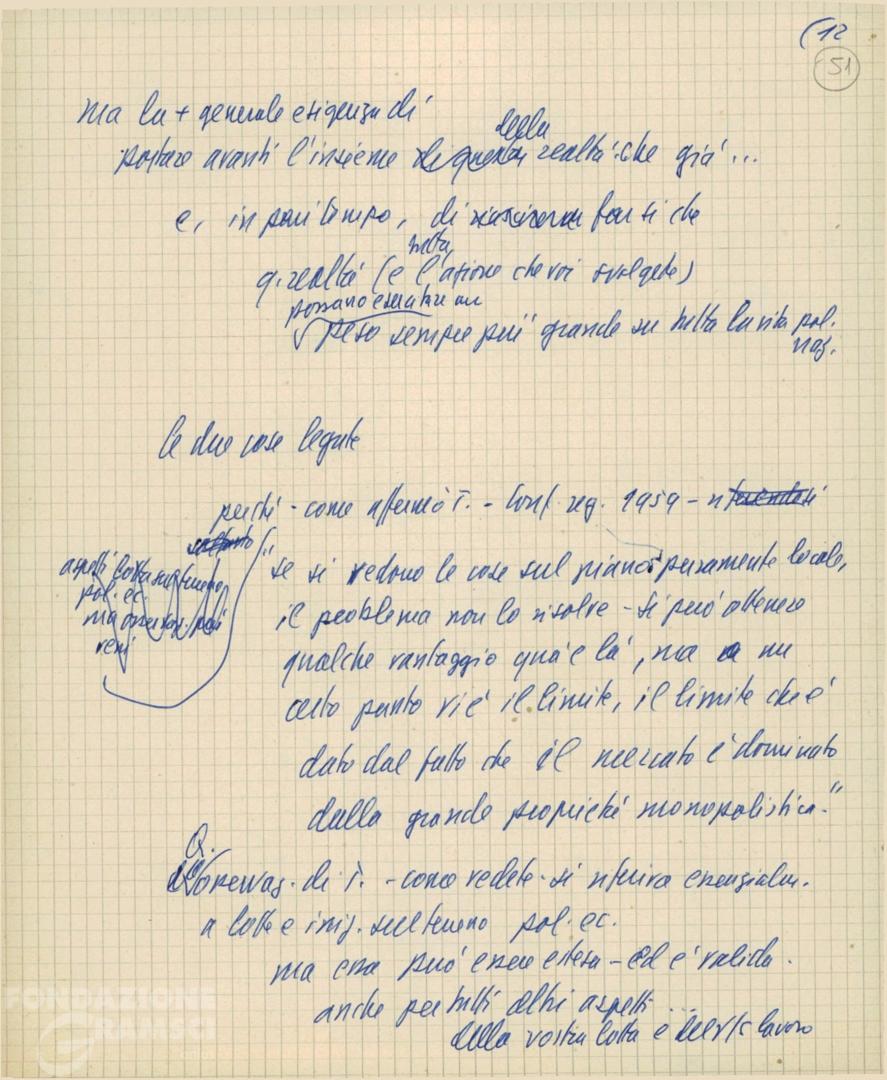 (12
51
ma la + generale esigenza di
della
portare avanti l'insieme di questa realtà che già...
e, in pari tempo, di far sì che
tutta
q. realtà (e l'azione che voi svolgete)
possano esercitare un
peso sempre più grande su tutta la vita pol.
naz.
le due cose legate
perché - come affermò T. - Conf. reg. 1959 -
soltanto
"se si vedono le cose sul piano puramente locale,
aspetti lotta sul terreno
pol. ec.
ma osservaz. più
il problema non lo risolve - si può ottenere
qualche vantaggio qua e là, ma a un
certo punto vi è il limite, il limite che è
dato dal fatto che il mercato è dominato
dalla grande proprietà monopolistica."
Q.
osservaz. di T. - come vedete - si riferiva essenzialm.
a lotte e iniz. sul terreno pol. ec.
ma essa può essere estesa - ed è valida -
anche per tutti altri aspetti...
della vostra lotta e del v/s lavoro
FONDAZIONE
GRAMSCI